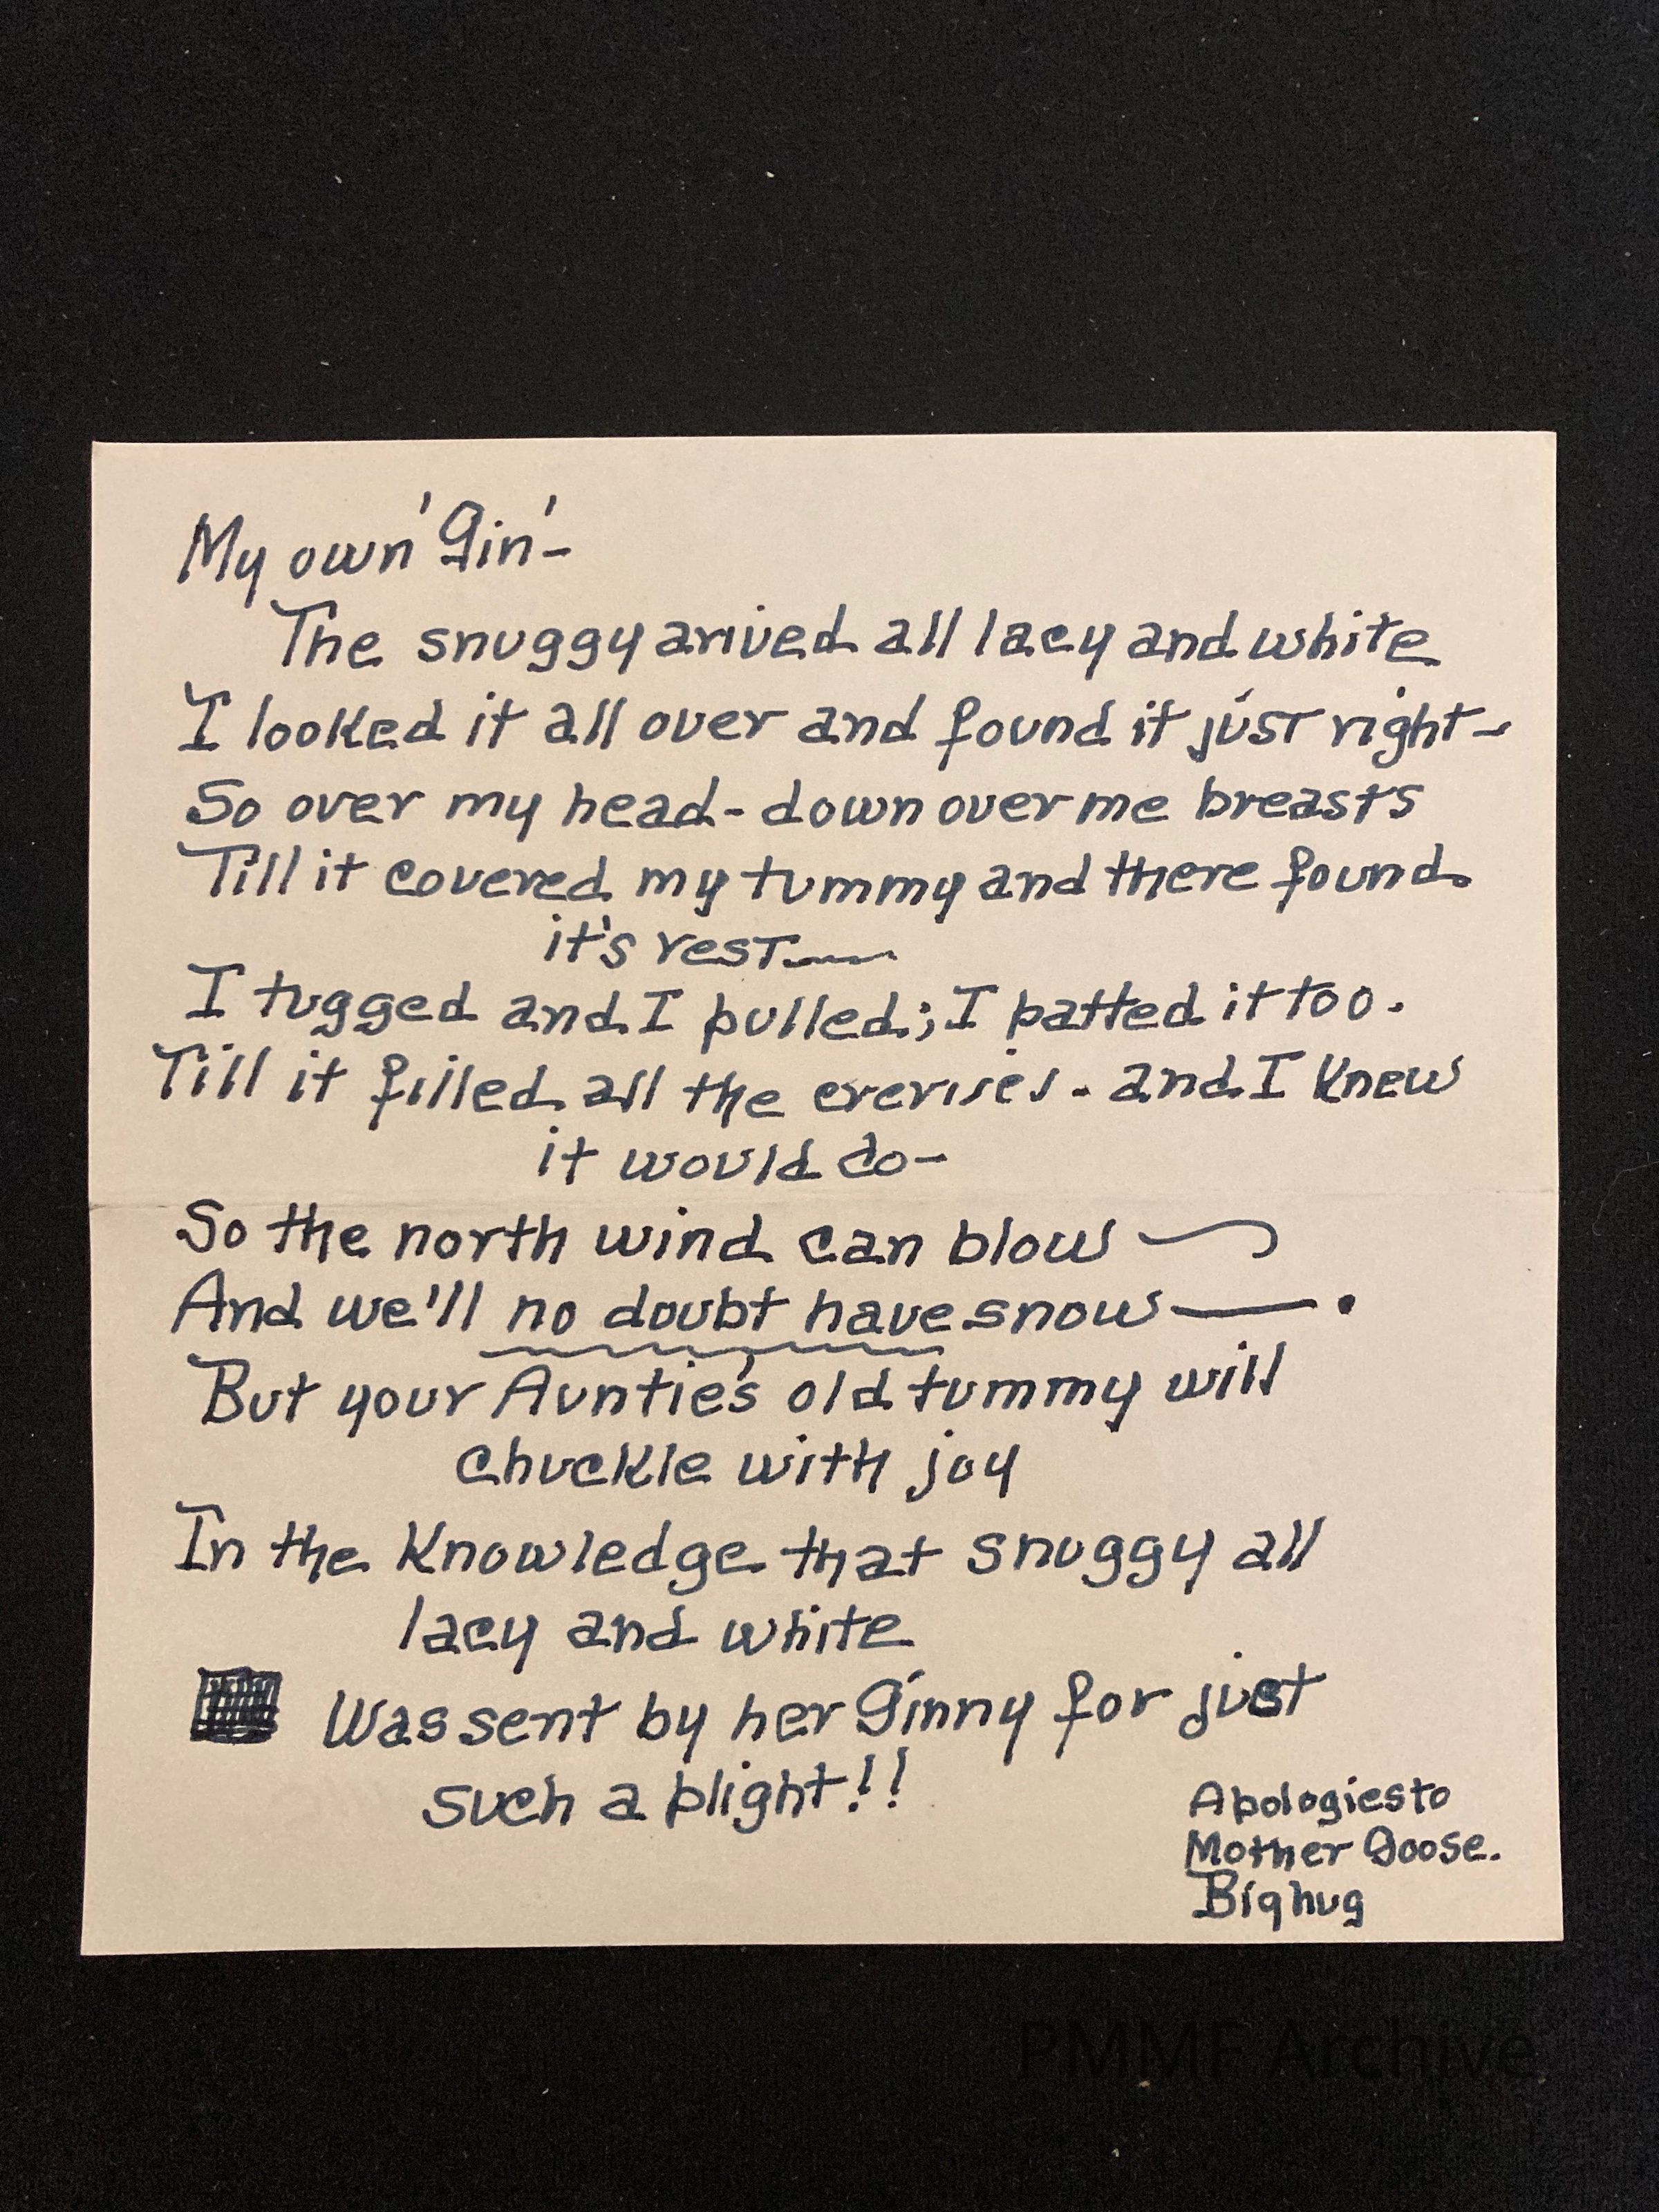 My own 'Gin'-
The snuggy arived all lacy and white
I looked it all over and found it just right-
So over my head - down over me breasts
Till it covered my tummy and there found
it's rest—
I tugged and I pulled; I patted it too.
Till it filled all the - and I knew
it would do-
So the north wind can blow —
And we'll no doubt have snow — .
But your Auntie's old tummy will
chuckle with joy
In the knowledge that snuggy all
lacy and white
Was sent by her Ginny for just
such a plight!!
Apologies to
Mother Goose.
Big hug
PMMF Archive